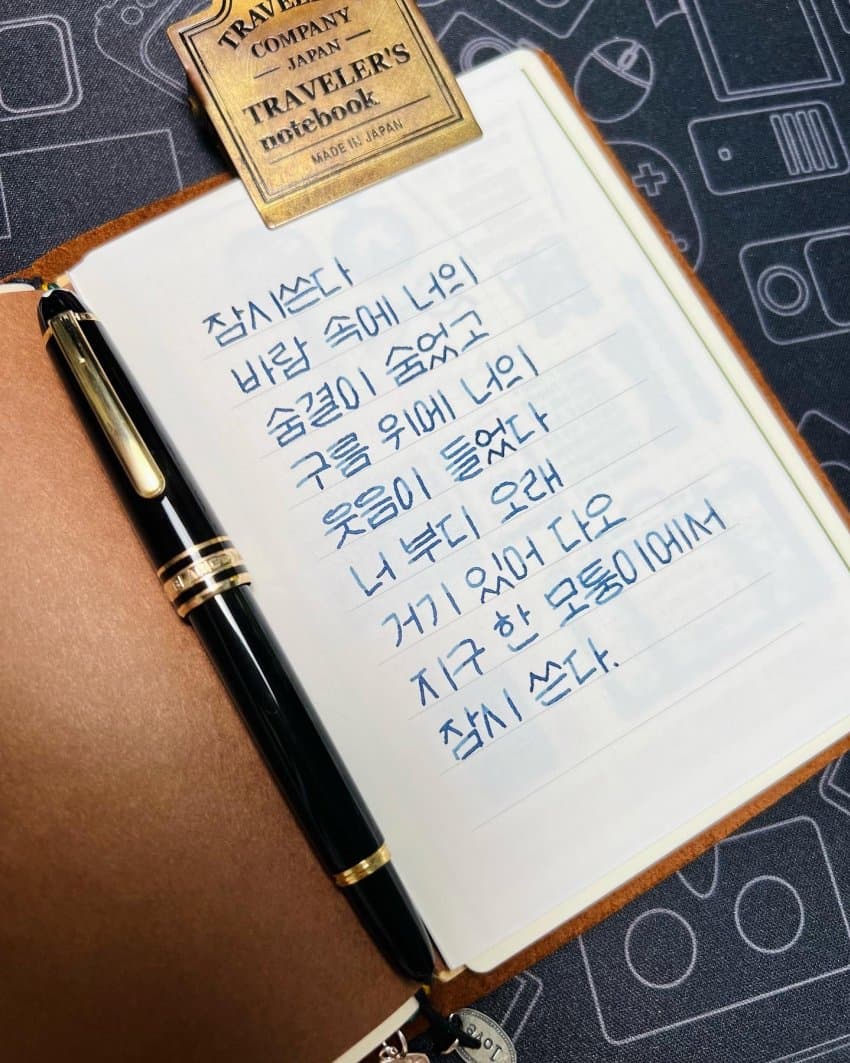 TRAVELER'S
COMPANY
JAPAN
TRAVELER'S
notebook
MADE IN JAPAN
잠시쓰다
바람 속에 너의
숨결이 숨었고
구름 위에 너의
웃음이 들었다
너 부디 오래
거기 있어 다오
지구 한 모퉁이에서
잠시 쓰다.
love